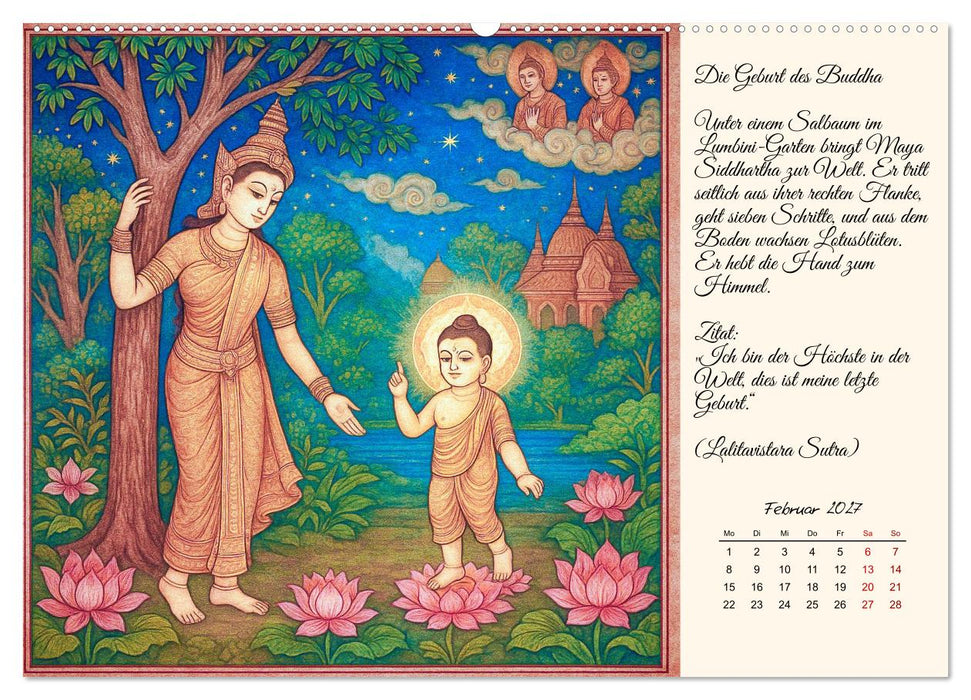 Die Geburt des Buddha
Unter einem Salbaum im
Lumbini-Garten bringt Maya
Siddhartha zur Welt. Er tritt
seitlich aus ihrer rechten Flanke,
geht sieben Schritte, und aus dem
Boden wachsen Lotusblüten.
Er hebt die Hand zum
Himmel.
Zitat:
„Ich bin der Höchste in der
Welt, dies ist meine letzte
Geburt.“
(Lalitavistara Sutra)
Februar 2027
Mo Di Mi Do Fr Sa So
1 2 3 4 5 6 7
8 9 10 11 12 13 14
15 16 17 18 19 20 21
22 23 24 25 26 27 28